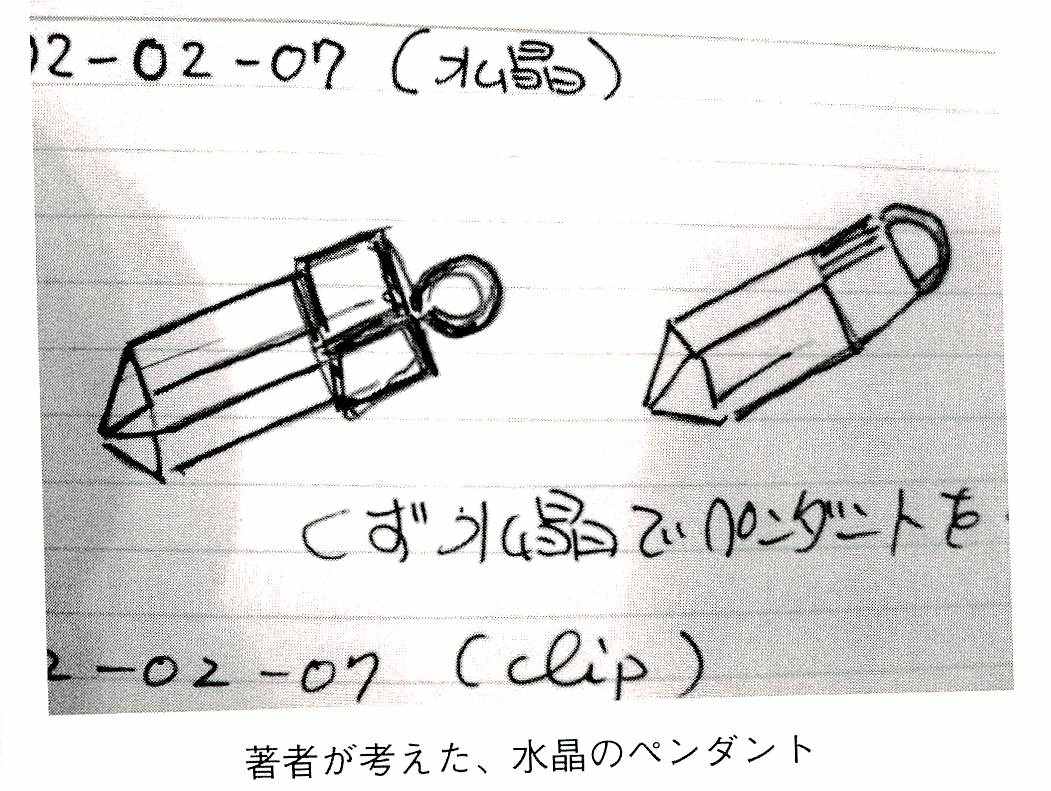 2-02-07 (水晶)
くず水晶でペンダントを
2-02-07 (clip)
著者が考えた、水晶のペンダント